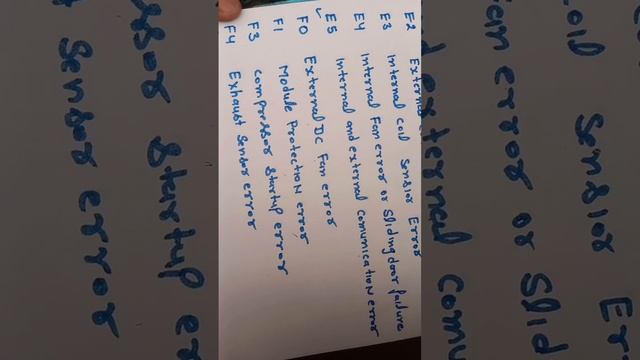 E2 External
E3 Internal coil sensior Error
E4 Internal Fan error or Sliding door failure
E5 Internal and external comunication error
F0 External DC Fan error
F1 Module Protection error
F3 compressor startup error
F4 Exhaust Sensor error